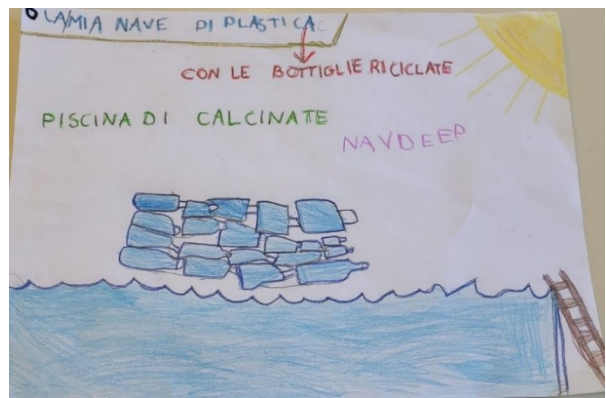 LA MIA NAVE DI PLASTICA
CON LE BOTTIGLIE RICICLATE
PISCINA DI CALCINATE
NAVDEEP